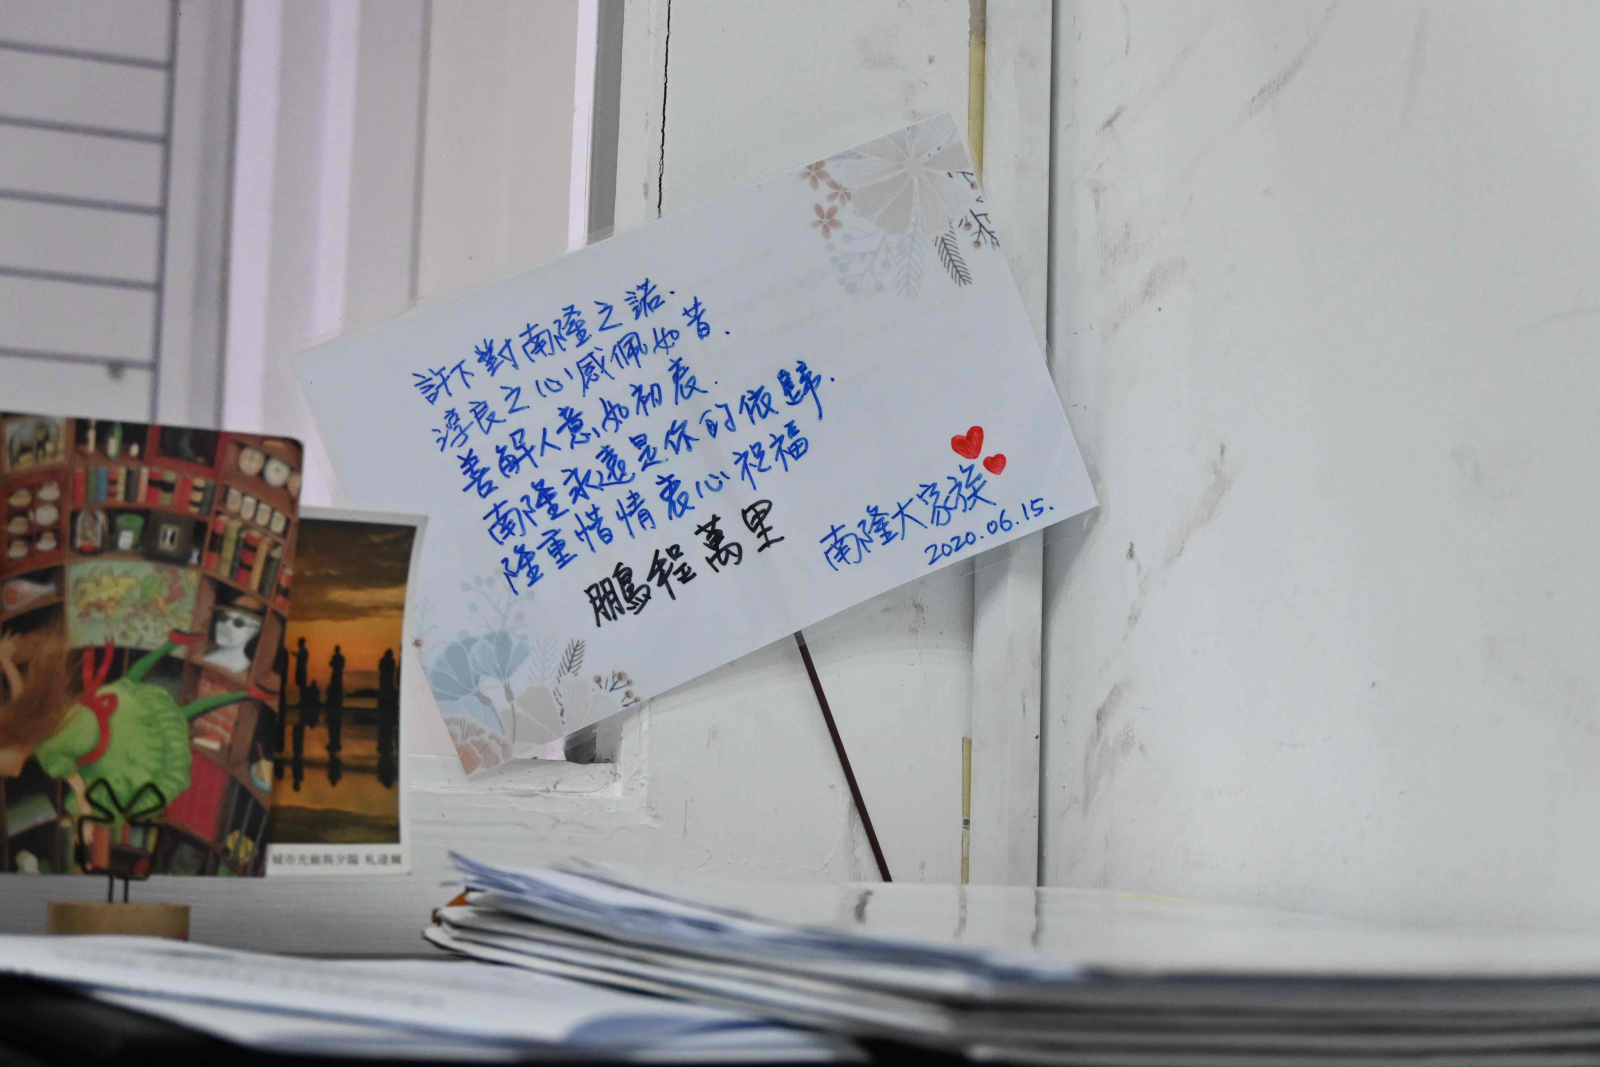 許下對南隆之諾.
淳良之心感佩如昔.
善解人意如初衷.
南隆永遠是你的依歸.
隆重惜情衷心祝福
鵬程萬里
南隆大家族
2020.06.15.
城市光廊與夕陽 札達爾